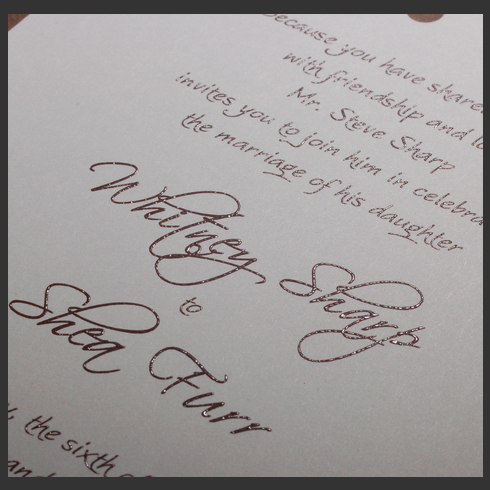 because you have shared
with friendship and
Mr. Steve Sharp
invites you to join him in
the marriage of his daughter
Whitney Sharp
to
Shea Furr
the sixth